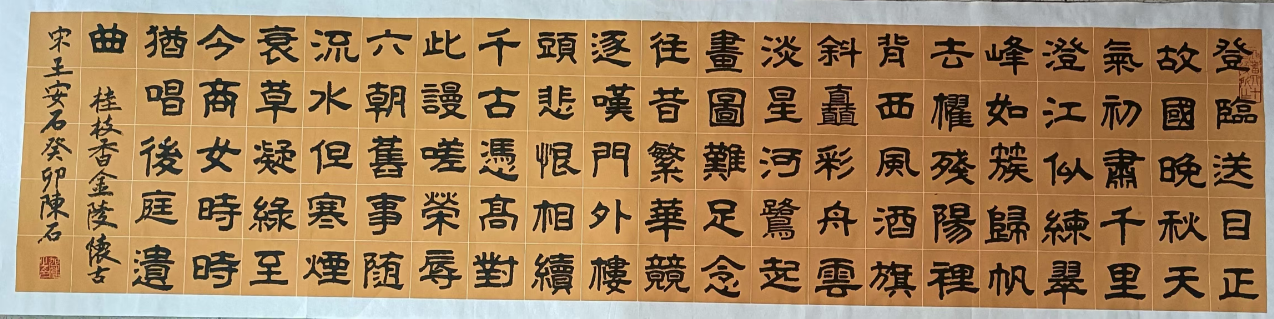 登臨送目正
故國晚秋天
氣初肅千里
澄江似練翠
峰如簇歸帆
去櫂殘陽裡
背西風酒旗
斜矗彩舟雲
淡星河鷺起
畫圖難足念
往昔繁華競
逐嘆門外樓
頭悲恨相續
千古憑髙對
此謾嗟榮辱
六朝舊事随
流水但寒煙
衰草凝綠至
今商女時時
猶唱後庭遺
曲
桂枝香金陵懷古
宋王安石癸卯陳石